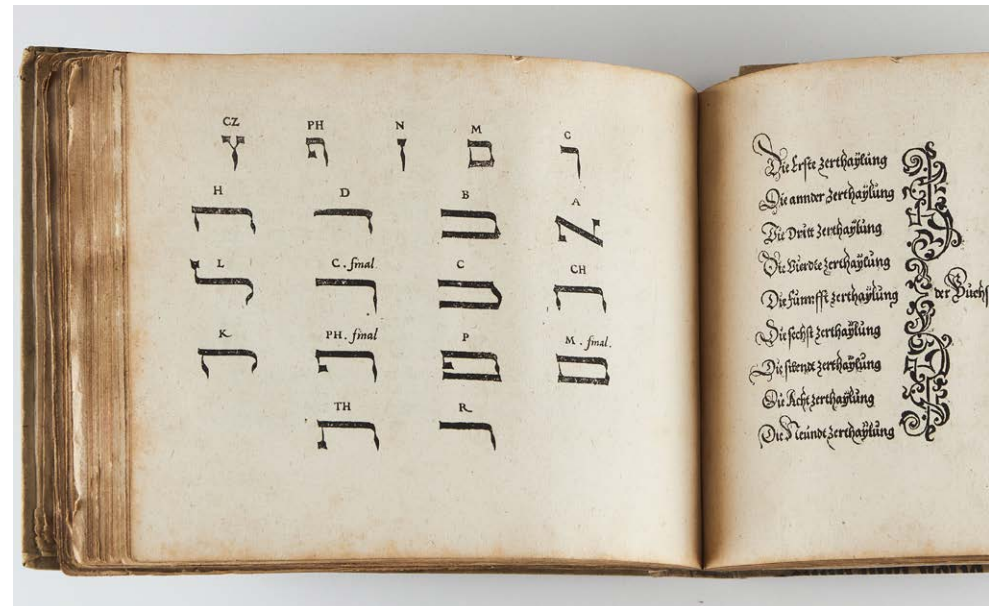 CZ PH N M G
ץ ף ן ם
H D B A
ה ד א
L C. final C CH
ל
K PH. final P M. final
פ ם
TH R
ת ר
Die Erste zerthaÿlŭng
Die annder zerthaÿlŭng
Die Dritt zerthaÿlŭng
Die Vierdte zerthaÿlŭng
Die Fŭnnfft zerthaÿlŭng der Bŭchs
Die sechst zerthaÿlŭng
Die sibendt zerthaÿlŭng
Die Acht zerthaÿlŭng
Die Neŭndt zerthaÿlŭng